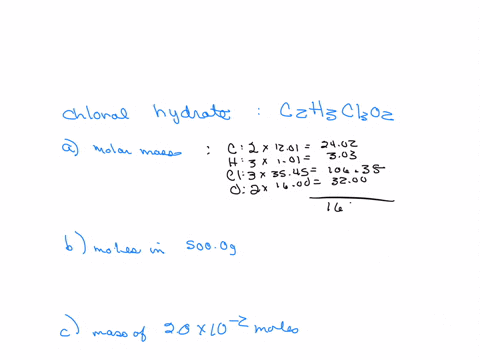 chloral hydrate : C2H3Cl3O2
a) molar mass : C: 2 × 12.01 = 24.02
H: 3 × 1.01 = 3.03
Cl: 3 × 35.45 = 106.35
O: 2 × 16.00 = 32.00
16
b) moles in 500.0g
c) mass of 2.0 × 10⁻² moles